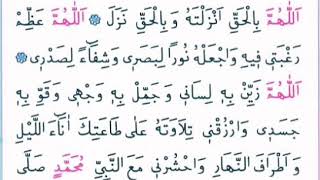 اَللّٰهُمَّ بِالْحَقِّ اَنْزَلْتَهُ وَ بِالْحَقِّ نَزَلَ ۞ اَللّٰهُمَّ عَظِّمْ
رَغْبَتِي فِيهِ وَ اجْعَلْهُ نُورًا لِبَصَرِي وَ شِفَاءً لِصَدْرِي ۞
اَللّٰهُمَّ زَيِّنْ بِهِ لِسَانِي وَ جَمِّلْ بِهِ وَجْهِي وَ قَوِّ بِهِ
جَسَدِي وَ ارْزُقْنِي تِلَاوَتَهُ عَلَى طَاعَتِكَ اٰنَاءَ اللَّيْلِ
وَ اَطْرَافَ النَّهَارِ وَ احْشُرْنِي مَعَ النَّبِيِّ مُحَمَّدٍ صَلَّى